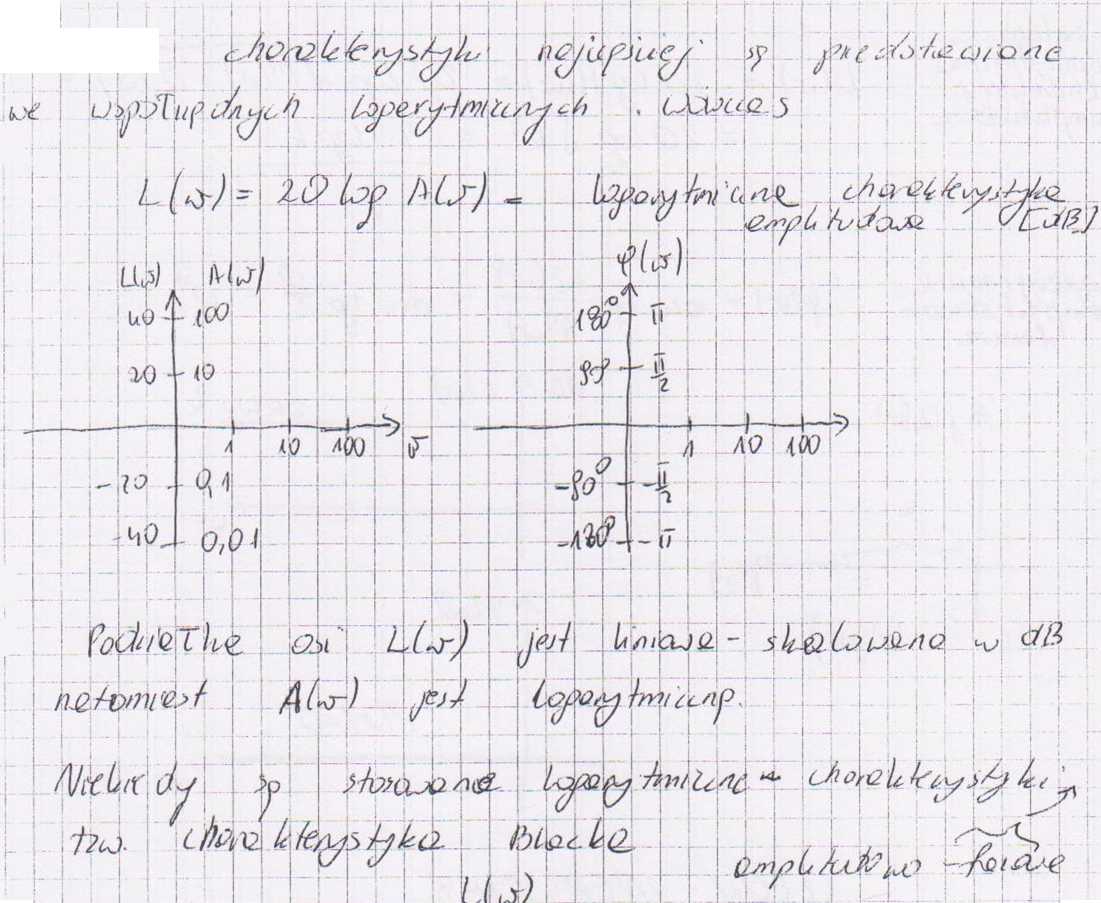 charakterystyki najczęściej są przedstawione
we współrzędnych logarytmicznych. Wówczas
L(ω) = 20 log A(ω) - logarytmiczna charakterystyka
amplitudowa [dB]
L(ω) A(ω)
40 100
20 10
1 10 100 ω
-20 0,1
-40 0,01
φ(ω)
180° π
90° π/2
1 10 100
-90° -π/2
-180° -π
Podziałka osi L(ω) jest liniowa - skalowana w dB
natomiast A(ω) jest logarytmiczną.
Niekiedy są stosowane logarytmiczne charakterystyki
amplitudowo - fazowe
tzw. charakterystyka Blacka
L(ω)